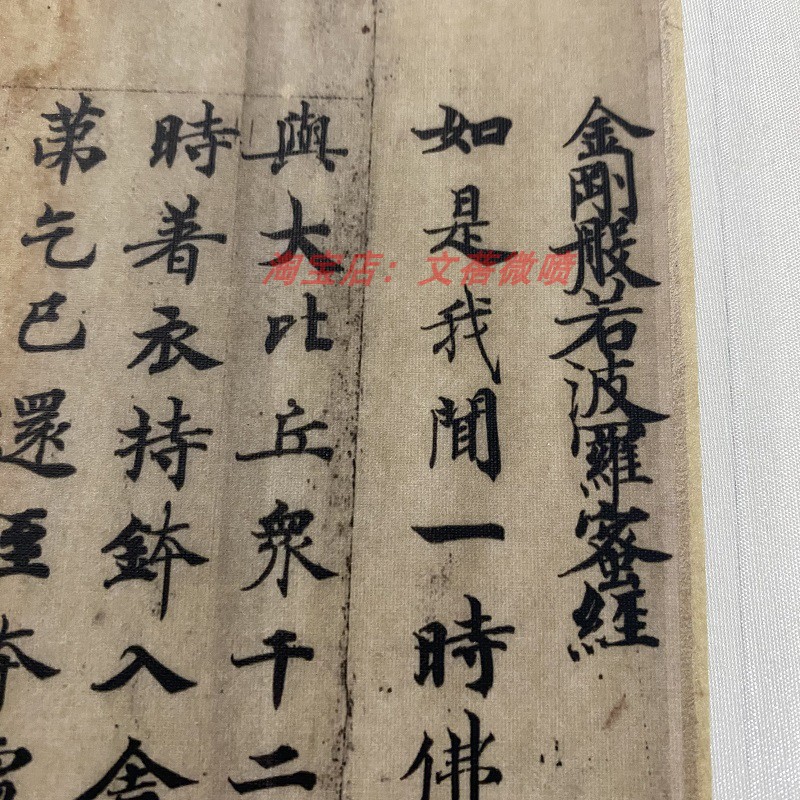 金剛般若波羅蜜經
如是我聞一時佛
與大比丘衆千二
時著衣持鉢入舍
苐乞已還至本處
淘宝店：文蓓微喷